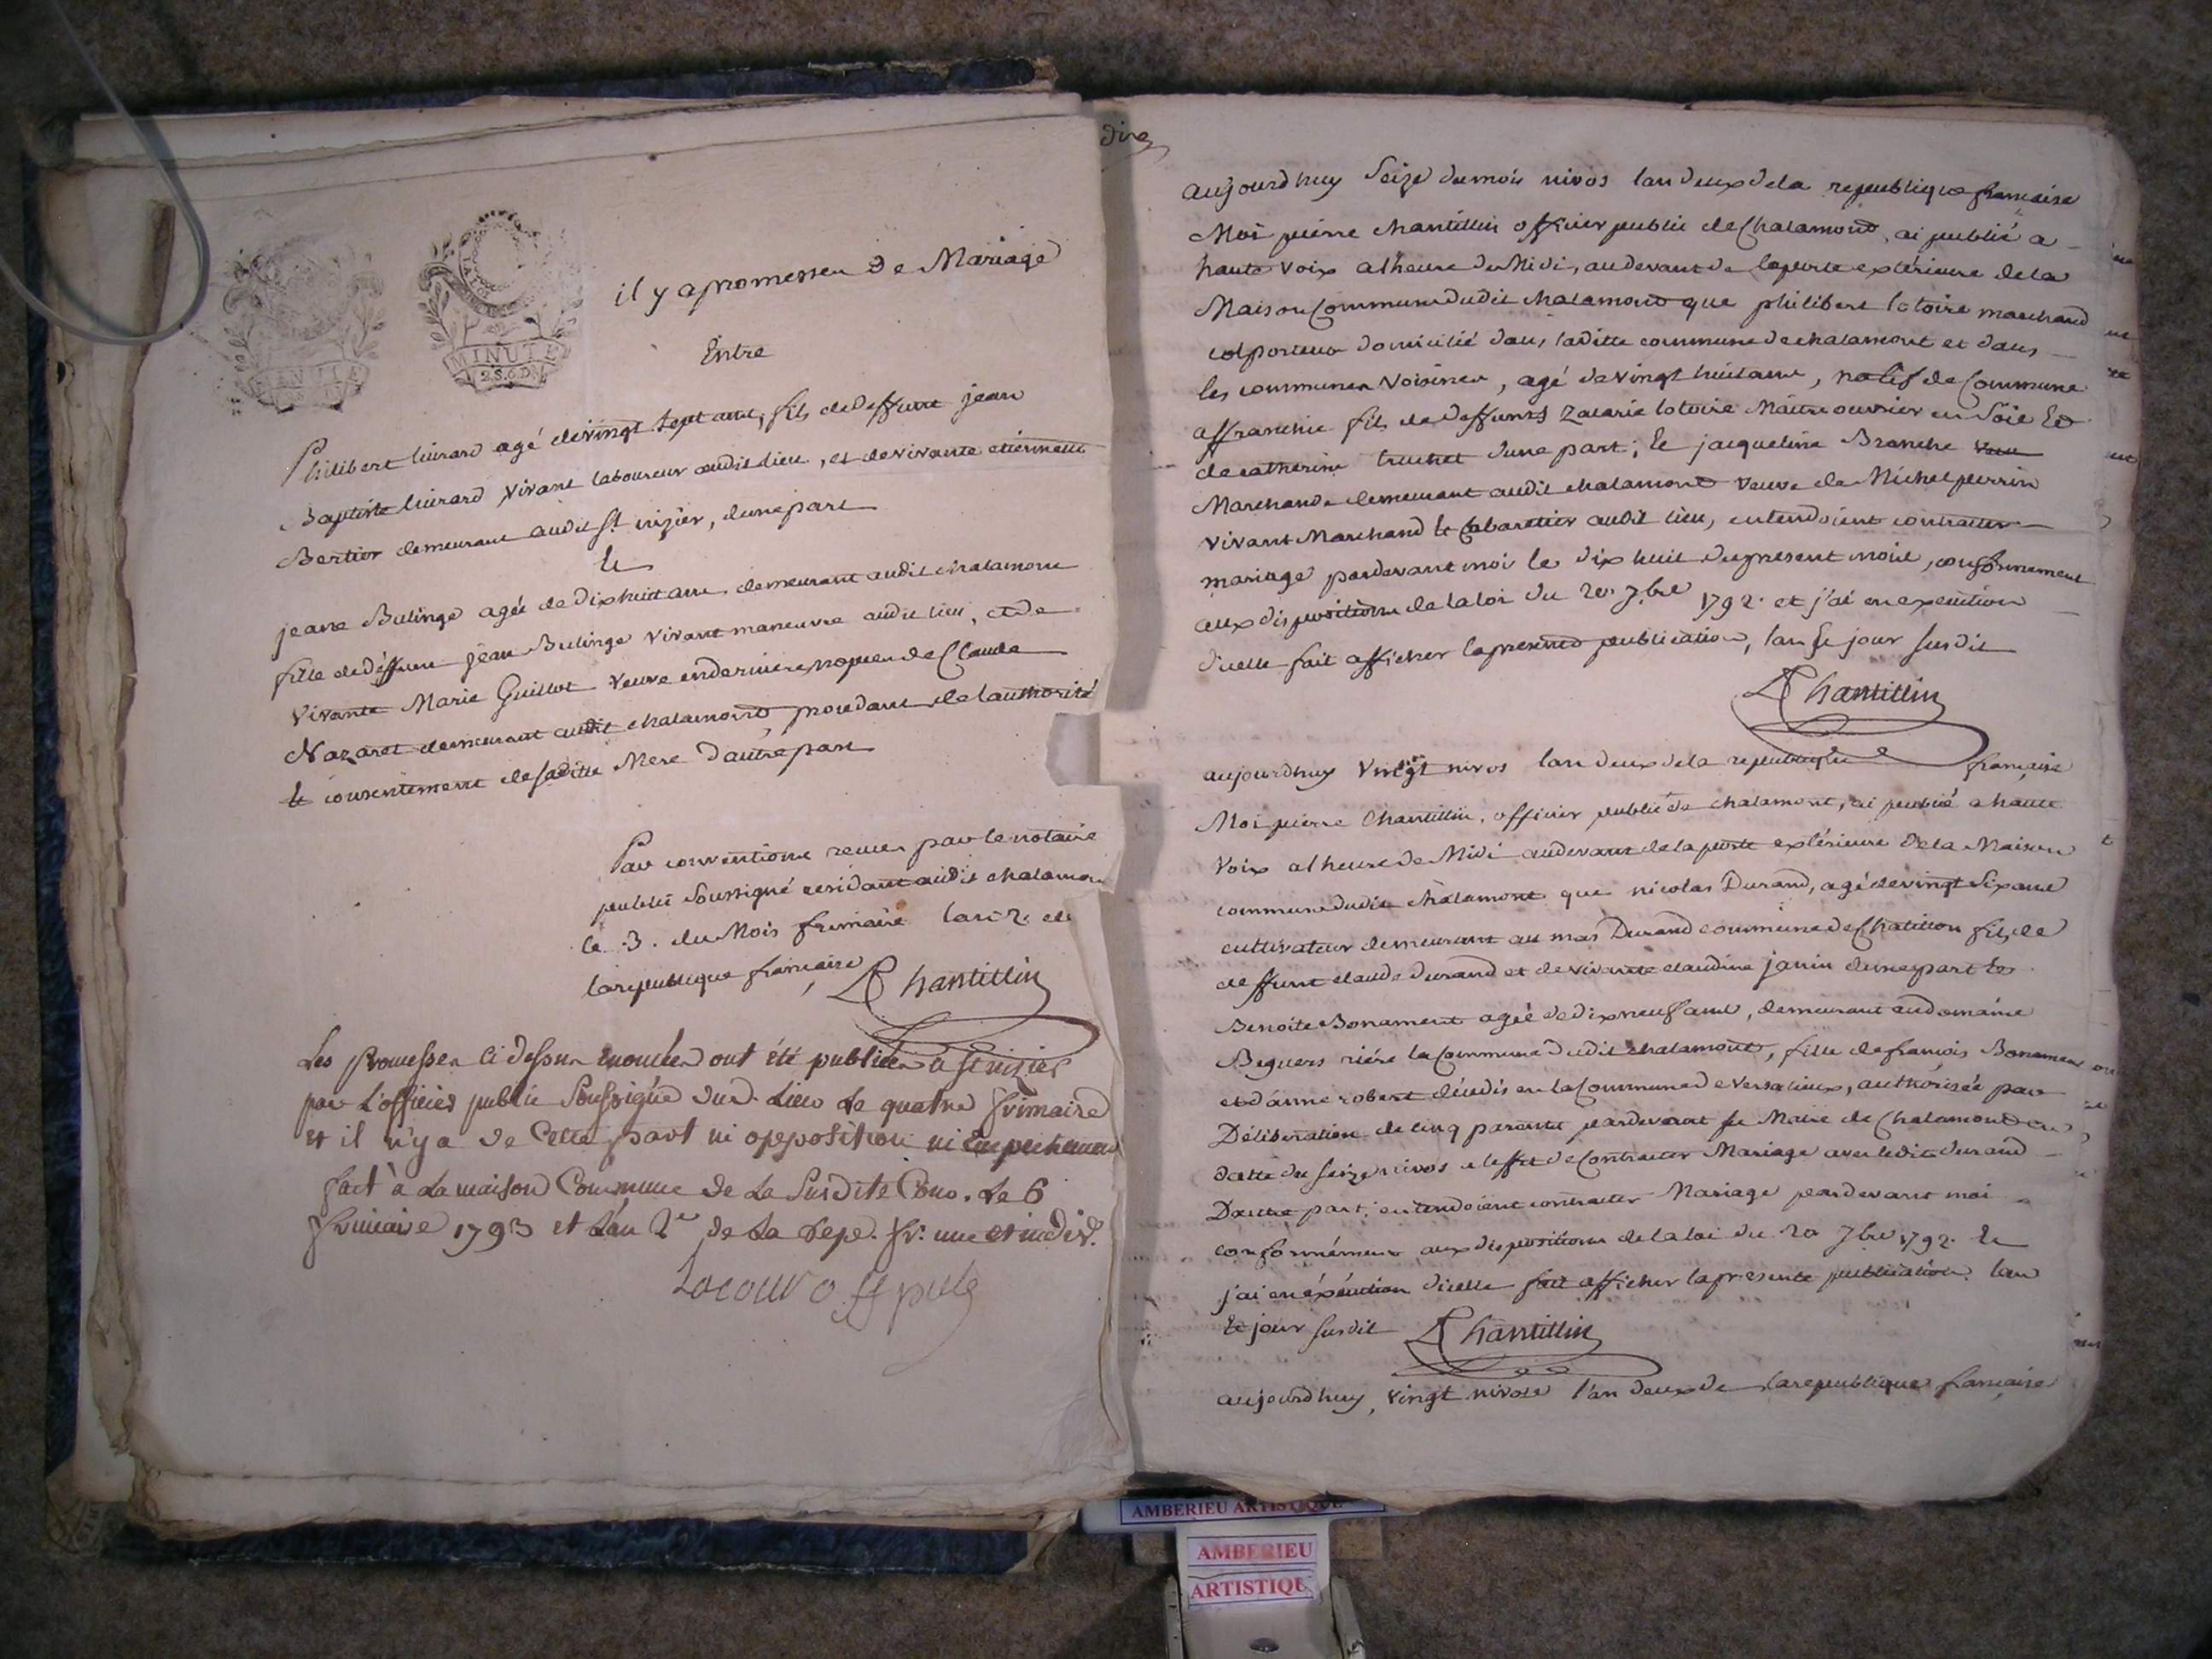 MINUTE
2.S.6.D
il y a promesses de Mariage
Entre
Philibert agé de vingt sept ans, fils de deffunt jean
Baptiste vivant laboureur audit lieu, et de vivante etiennette
Bertier demeurant audit St nizier, dune part
Et
jeane Bulinge agée de dix huit ans, demeurant audit chalamont
fille de déffunt jean Bulinge vivant maneuvre audit lieu, et de
vivante Marie Guillot veuve en derniere nopces de Claude
Nazaret demeurant audit chalamont, procedant de l'authorité
et consentement de saditte Mere d'autre part
Par conventions recues par le notaire
public soussigné residant audit chalamon
le 3. du Mois frimaire lan 2. de
la republique française, Chantillin
Les promesses ci dessus enoncées ont été publiées a St nizier
par L'officier public Soussigné dud. Lieu Le quatre frimaire
et il n'y a de Cette part ni opposition ni Empechement
fait à La maison Commune de La Susdite Comm. Le 6
frimaire 1793 et L'an 2e de La Rep. fr. une et indiv.
off publ
dire
aujourd huy Seize du mois nivos lan deux de la republique francaise
Moi pierre chantillin officier public de Chalamond, ai publié a
haute voix a lheure de Midi, au devant de la porte extérieure de la
Maison Commune dudit chalamond que philibert lotoire marchand
colporteur domicilié dans laditte commune de chalamont et dans
les communes voisines, agé de vingt huit ans, natif de Commune
affranchie fils de deffunts Zacarie lotoire Maitre ouvrier en Soie Et
de catherine truchet dune part; Et jacqueline Branche
Marchande demeurant audit chalamont veuve de Michel perrin
vivant Marchand et Cabaretier audit lieu, entendoient contracter
mariage pardevant moi le dix huit du present mois, conformement
aux dispositions de la loi du 20 7bre 1792. et j'ai en execution
d'icelle fait afficher la presente publication, lan et jour susdit
Chantillin
aujourdhuy vingt nivos lan deux de la republique française
Moi pierre Chantillin, officier public de chalamont, ai publié a haute
voix a lheure de Midi au devant de la porte extérieure de la Maison
commune dudit chalamont que nicolas Durand, agé de vingt six ans
cultivateur demeurant au mas Durand commune de Chatillon fils de
deffunt claude Durand et de vivante claudine janin dune part Et
Benoite Bonament agée de dix neuf ans, demeurant au domaine
Beguers riére la Commune dudit chalamont, fille de françois Bonament
et d'anne robert décédés en la Commune de Versalieux, authorisée par
Déliberation de cinq parents pardevant le Maire de Chalamond en
datte du seize nivos a leffet de Contracter Mariage avec ledit durand
D'autre part, entendoient contracter Mariage pardevant moi
conformément aux dispositions de la loi du 20 7bre 1792. Et
j'ai en éxécution d'icelle fait afficher la presente publication. lan
Et jour susdit Chantillin
aujourd huy, vingt nivose l'an deux de la republique francaise
AMBERIEU ARTISTIQUE
AMBERIEU
ARTISTIQU